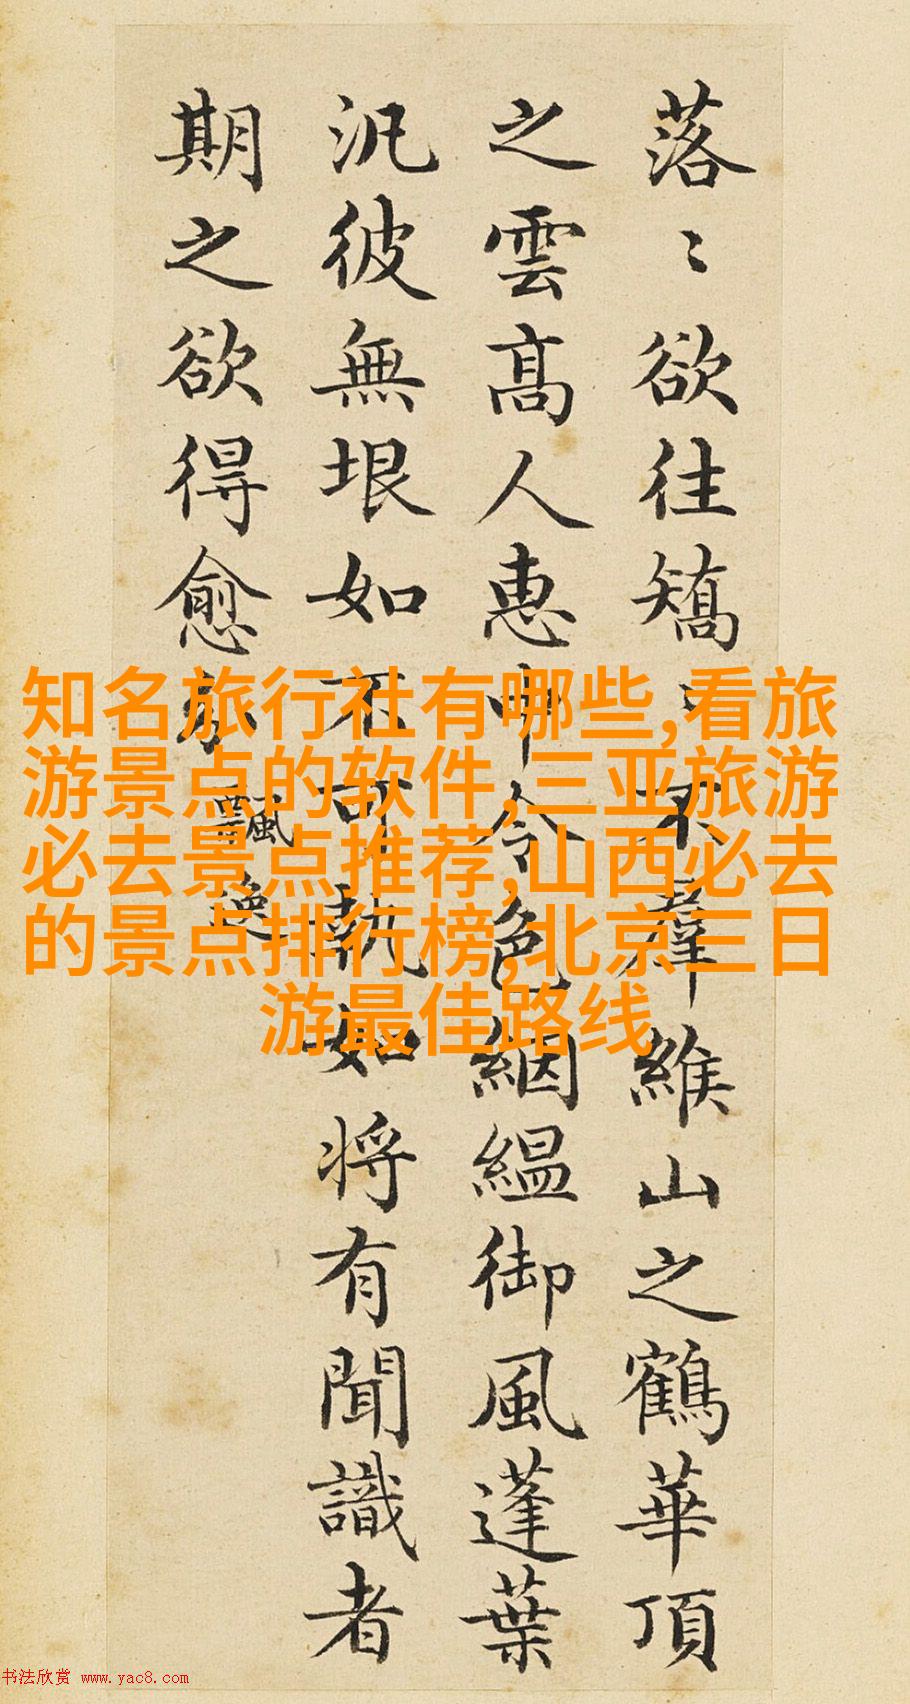 落〻欲往矯〻不羣緱山之鶴華頂
之雲髙人惠中令色絪縕御風蓬葉
汎彼無垠如不可執如将有聞識者
期之欲得愈分
飄逸
知名旅行社有哪些,看旅
游景点的软件,三亚旅游
必去景点推荐,山西必去
的景点排行榜,北京三日
游最佳路线
书法欣赏 www.yac8.com